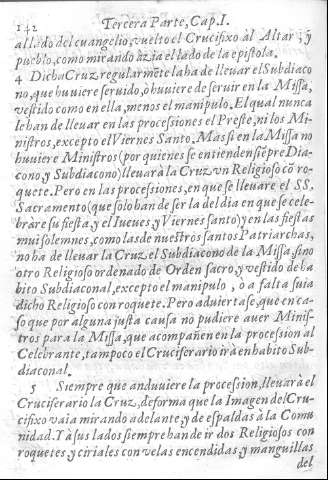 142 Tercera Parte, Cap. I.
al lado del euangelio, vuelto el Crucifixo àl Altar, y
pueblo, como mirando àzia el lado de la epistola.
4 Dicha Cruz regularmẽte la ha de lleuar el Subdiaco
no, que huuiere seruido, ò huuiere de seruir en la Missa,
vestido como en ella, menos el manipulo. El qual nunca
le han de lleuar en las processiones el Preste, ni los Mi-
nistros, excepto el Viernes Santo. Mas si en la Missa no
huuiere Ministros (por quienes se entienden siẽpre Dia-
cono, y Subdiacono) lleuarà la Cruz vn Religioso cõ ro-
quete. Pero en las procesiones, en que se lleuare el SS.
Sacramento (que solo han de ser la del dia en que se cele-
bràre su fiesta, y el Iueues, y Viernes santo) y en las fiestas
mui solemnes, como las de nuestros santos Patriarchas,
no ha de lleuar la Cruz el Subdiacono de la Missa, sino
otro Religioso ordenado de Orden sacro, y vestido de ha
bito Subdiaconal, excepto el manipulo, ò a falta suia
dicho Religioso con roquete. Pero aduiertase, que en ca-
so que por alguna justa causa no pudiere auer Minis-
tros para la Missa, que acompañen en la procession al
Celebrante, tampoco el Cruciferario irà en habito Sub-
diaconal.
5 Siempre que anduuiere la procesion, lleuarà el
Cruciferario la Cruz, de forma que la Imagen del Cru-
cifixo vaia mirando adelante, y de espaldas à la Comu
nidad. Y à sus lados siempre han de ir dos Religiosos con
roquetes, y ciriales con velas encendidas, y manguillas
del